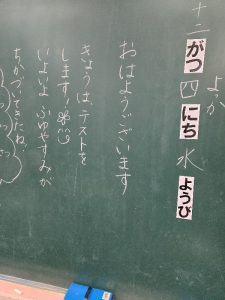 十二がつ四にち水ようび
よっか
おはようございます
きょうは、テストを
します!
いよいよ ふゆやすみが
ちかづいてきたね。